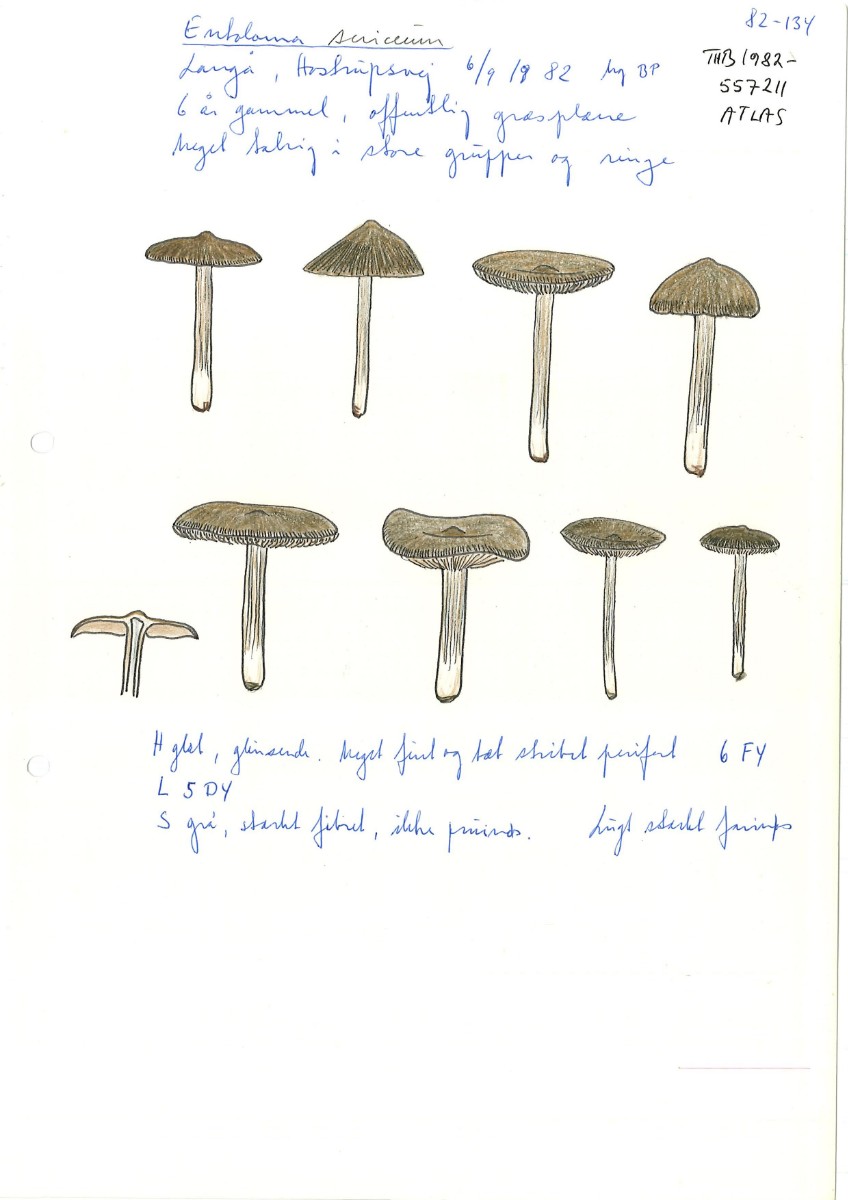 82-134
Entoloma sericeum
Langå, Hostrupsvej 6/9 1982 leg BP
THB1982-
557211
ATLAS
6 år gammel, offentlig græsplæne
Meget talrig i store grupper og ringe
H glat, glinsende. Meget fint og tæt stribet perifert 6 F4
L 5D4
S grå, stærkt fibret, ikke pruinøs. Lugt stærkt